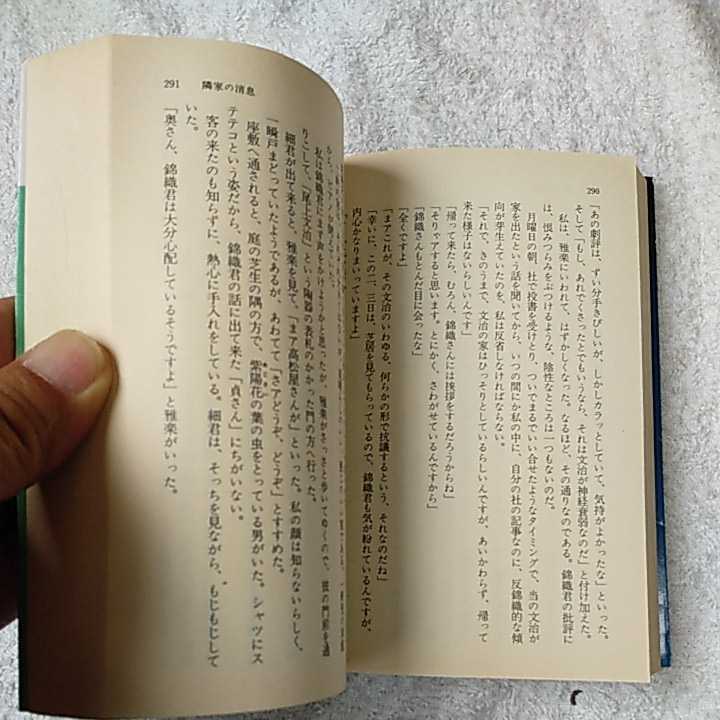 290
「あの劇評は、ずい分手きびしいが、しかしカラッとしていて、気持がよかったな」といった。
そして「もし、あれでくさったとでもいうなら、それは文治が神経衰弱なのだ」と付け加えた。
私は、雅楽にいわれて、はずかしくなった。なるほど、その通りなのである。錦織君の批評に
は、恨みつらみをぶつけるような、陰性なところは一つもないのだ。
月曜日の朝、社で投書を受けとり、ついでまるでいい合せたようなタイミングで、当の文治が
家を出たという話を聞いてから、いつの間にか私の中に、自分の社の記事なのに、反錦織的な傾
向が芽生えていたのを、私は反省しなければならない。
「それで、きのうまで、文治の家はひっそりとしているらしいんですが、あいかわらず、帰って
来た様子はないんですね」
「帰って来たら、むろん、錦織さんには挨拶をするだろうからね」
「そりゃアすると思います。とにかく、さわがせているんですから」
「錦織さんもとんだ目に会ったな」
「全くですよ」
「まアこれが、その文治のいわゆる、何らかの形で抗議するという、それなのだね」
「幸いに、この二、三日は、芝居を見てもらっているので、錦織君も気が紛れているんですが、
内心かなりまいっていますよ」
291 隣家の消息
私は錦織君にまず声をかけようかと思ったが、雅楽がさっさと歩いてゆくので、彼の門前を通
りこして、「尾上文治」という陶器の表札のかかった門の方へ行った。
細君が出て来ると、雅楽を見て、「まア高松屋さんが」といった。私の顔は知らないらしく、
一瞬戸まどっていたようであるが、あわてて「さアどうぞ、どうぞ」とすすめた。
座敷へ通されると、庭の芝生の隅の方で、紫陽花の葉の虫をとっている男がいた。シャツにス
テテコという姿だから、錦織君の話に出て来た「貞さん」にちがいない。
客の来たのも知らずに、熱心に手入れをしている。細君は、そっちを見ながら、もじもじして
いた。
「奥さん、錦織君は大分心配しているそうですよ」と雅楽がいった。